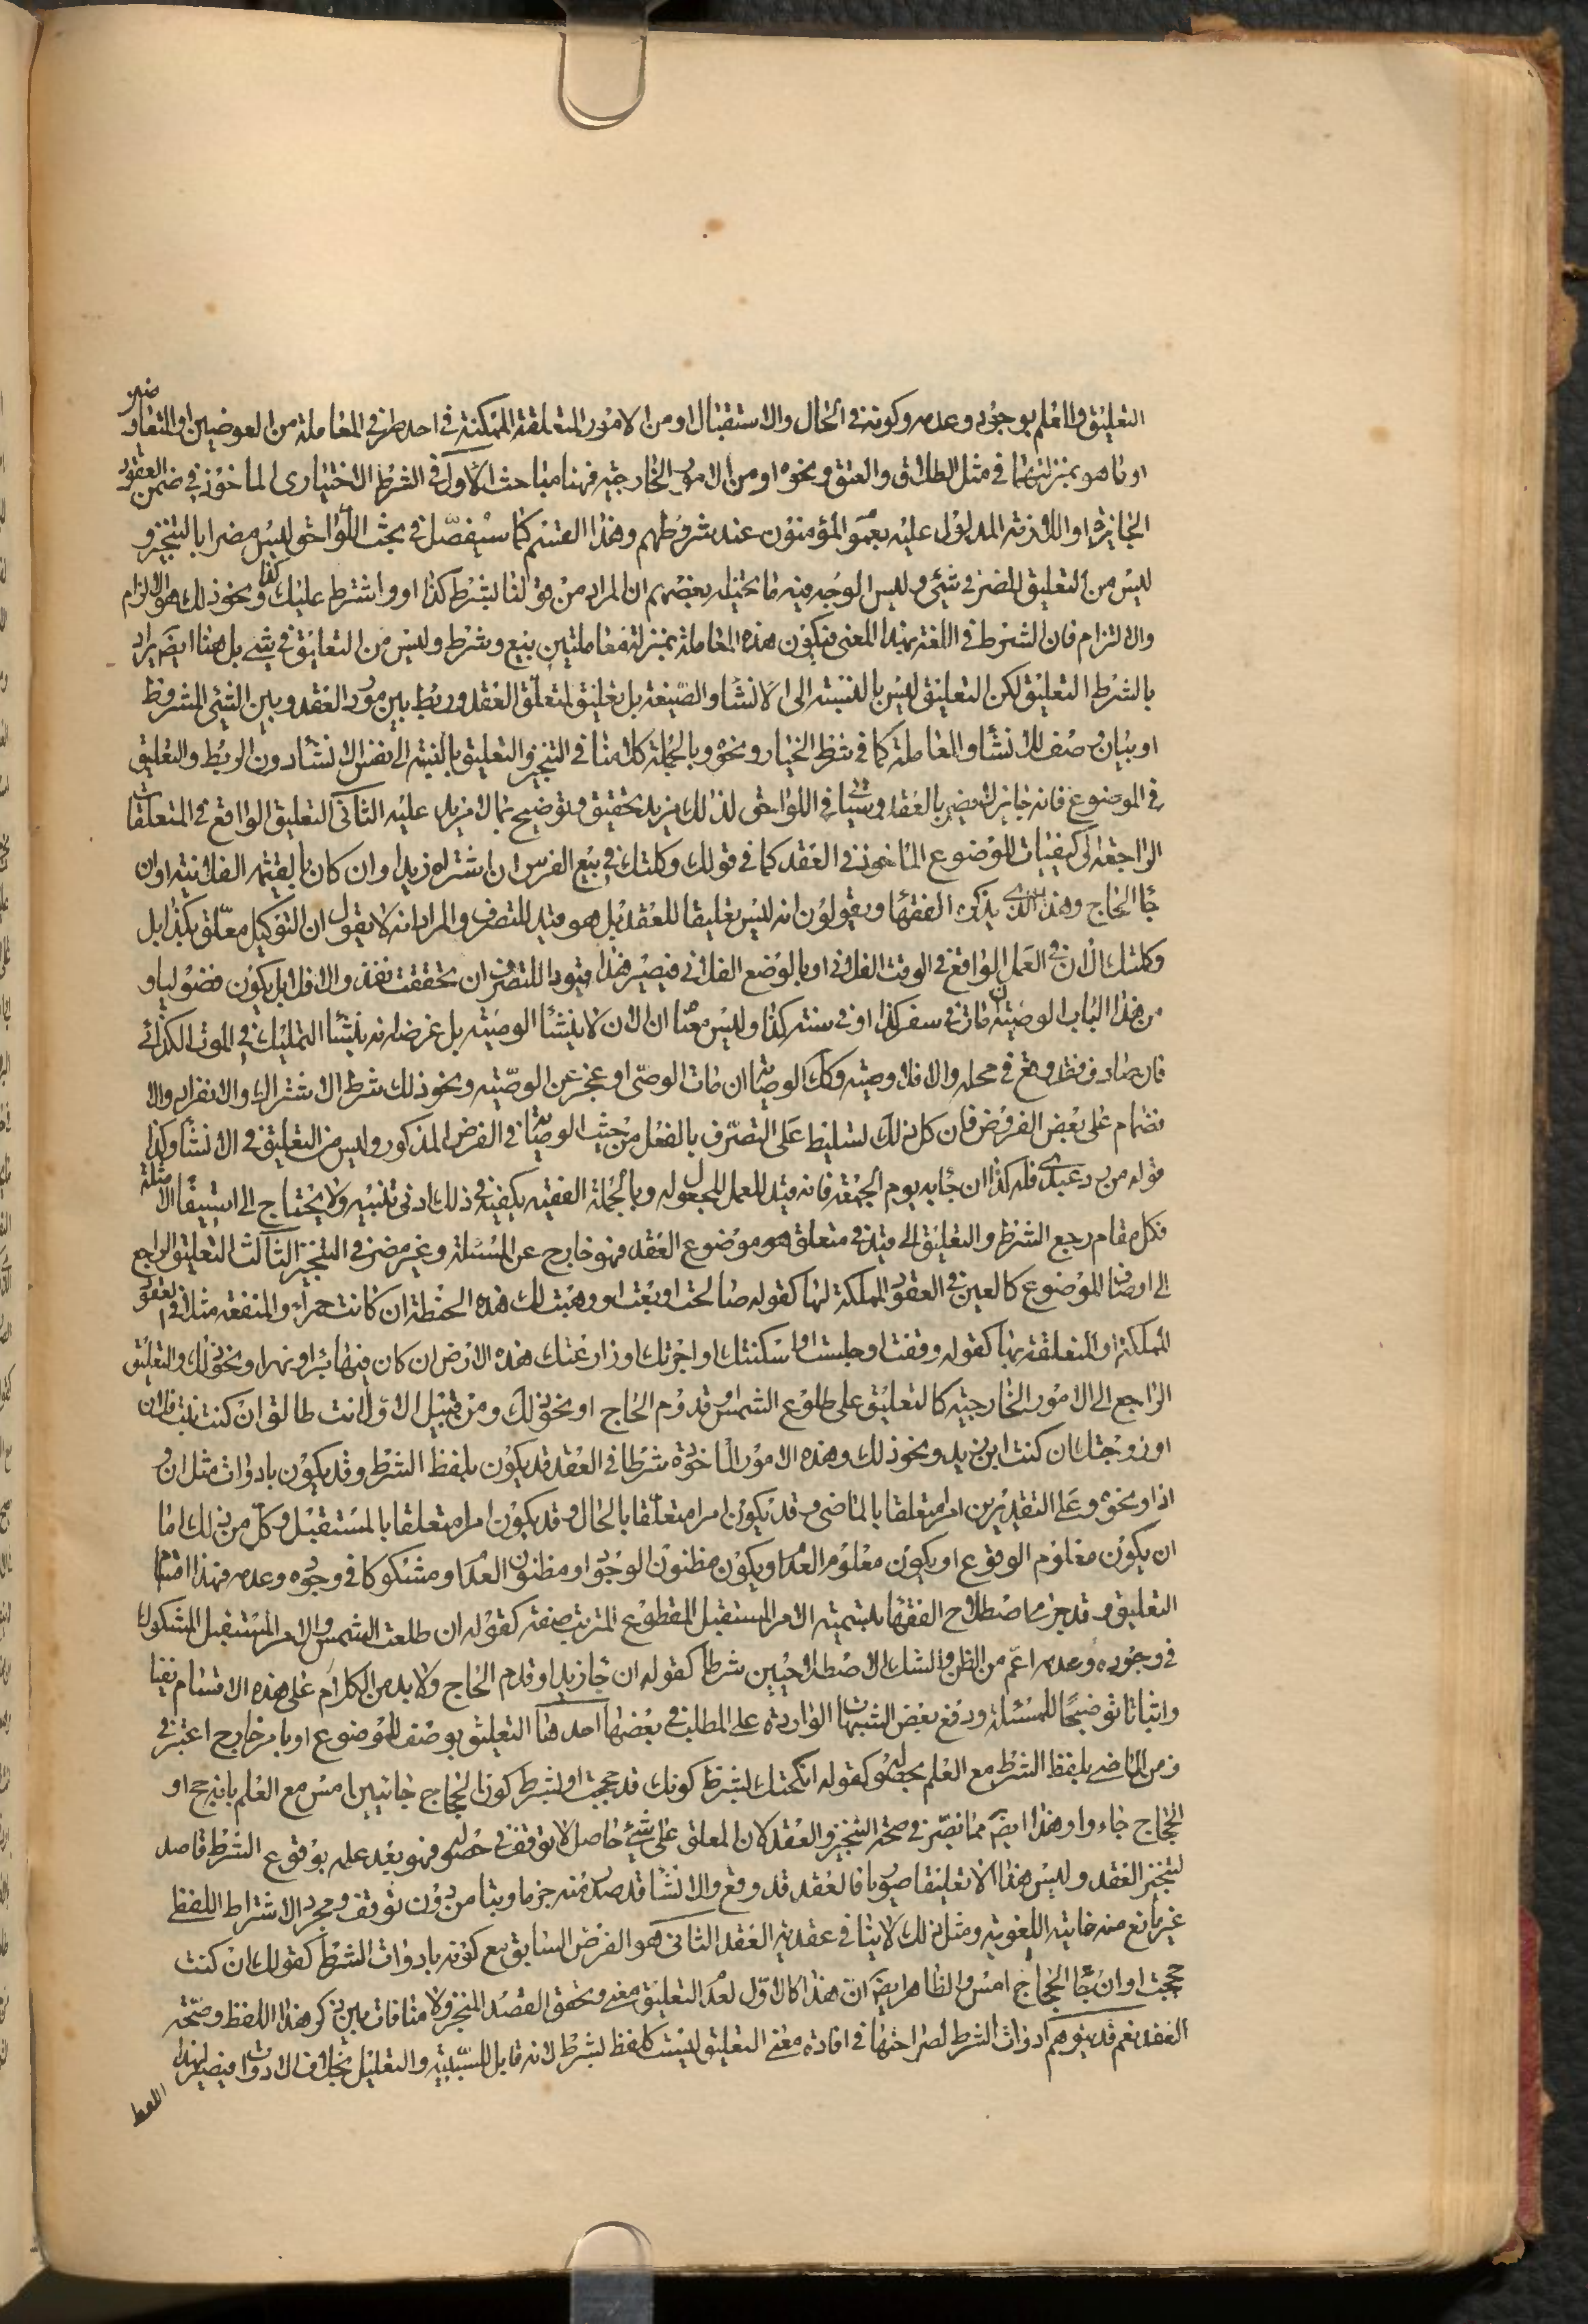 التعليق والعلم بوجوده وعدمه وكونه في الحال والاستقبال او من الامور المتعلقة الممكنة في احد طرفي المعاملة من العوضين او المتعاوضين
او ما هو بمنزلتهما في مثل الطلاق والعتق ونحوه او من الامور الخارجية فهنا مباحث الاول في الشرط الاختياري الماخوذ في ضمن العقود
الجايزة او اللازمة المدلول عليه بعموم المؤمنون عند شروطهم وهذا القسم كما سيفصل في بحث اللواحق ليس مضرا بالتنجيز و
ليس من التعليق المضر في شيء وليس الوجه فيه ما تخيله بعضهم ان المراد من قولنا بشرط كذا او واشترط عليك كذا ونحو ذلك هو الالزام
والالتزام فان الشرط في اللغة بهذا المعنى فيكون هذه المعاملة بمنزلة معاملتين بيع وشرط وليس من التعليق في شيء بل هنا ايضا يراد
بالشرط التعليق لكن التعليق ليس بالنسبة الى الانشاء والصيغة بل تعليق لمتعلق العقد وربط بين مورد العقد وبين الشيء المشروط
او بيان وصف للانشاء والمعاملة كما في شرط الخيار ونحوه وبالجملة كلامنا في التنجيز والتعليق بالنسبة الى نفس الانشاء دون الربط والتعليق
في الموضوع فانه جايز لا مضر بالعقد وسياتي في اللواحق لذلك مزيد تحقيق وتوضيح بما لا مزيد عليه الثاني التعليق الواقع في المتعلقات
الراجعة الى كيفيات الموضوع الماخوذ في العقد كما في قولك وكلتك في بيع الفرس ان اشتراه زيد او ان كان بالقيمة الفلانية او ان
جاء الحاج وهذا الذي يذكره الفقهاء ويقولون انه ليس تعليقا للعقد بل هو قيد للتصرف والمراد انه لا يقول ان التوكيل معلق بكذا بل
وكلتك الان في العمل الواقع في الوقت الفلاني او بالوضع الفلاني فيصير هذا قيودا للتصرف ان تحققت نفذ والا فلا بل يكون فضوليا و
من هذا الباب الوصية ان مات في سفر كذا او في سنة كذا وليس معناه ان الان لا ينشا الوصية بل غرضه انه ينشا التمليك في الموت الكذائي
فان صادف فقد وقع في محله والا فلا وصية وكذا الوصاية ان مات الوصي او عجز عن الوصية ونحو ذلك شرط الاشتراك والانفراد والا
نضمام على بعض الفروض فان كل ذلك تسليط على التصرف بالفعل من حيث الوصاية في الفرض المذكور وليس من التعليق في الانشاء وكذا
قوله من رد عبدي فله كذا ان جاء به يوم الجمعة فانه قيد للعمل المجعول له وبالجملة الفقيه يكفيه في ذلك ادنى تنبيه ولا يحتاج الى استيفاء الامثلة
فكل مقام رجع الشرط والتعليق الى قيد في متعلق هو موضوع العقد فهو خارج عن المسئلة وغير مضر في التنجيز الثالث التعليق الراجع
الى اوصاف الموضوع كالعين في العقود المملكة لها كقوله صالحت او بعت او وهبت لك هذه الحنطة ان كانت حمراء والمنفعة مثلا في العقود
المملكة او المتعلقة بها كقوله وقفت او حبست او اسكنتك او اجرتك او زارعتك هذه الارض ان كان فيها بئر او نهر او نحو ذلك والتعليق
الراجع الى الامور الخارجية كالتعليق على طلوع الشمس وقدوم الحاج او نحو ذلك ومن قبيل الاول انت طالق ان كنت بنت فلان
او زوجتك ان كنت ابن زيد ونحو ذلك وهذه الامور الماخوذة شرطا في العقد قد يكون بلفظ الشرط وقد يكون بادوات مثل ان و
اذا ونحوه وعلى التقديرين اما متعلقا بالماضي وقد يكون امرا متعلقا بالحال وقد يكون امرا متعلقا بالمستقبل وكل من ذلك اما
ان يكون معلوم الوقوع او يكون معلوم العدم او يكون مظنون الوجود او مظنون العدم او مشكوكا في وجوده وعدمه فهذا اقسام
التعليق وقد جرى اصطلاح الفقهاء بتسمية الامر المستقبل المقطوع المترتب صفة كقوله ان طلعت الشمس والامر المستقبل المشكوك
في وجوده وعدمه اعم من الظن والشك الاصطلاحيين شرطا كقوله ان جاء زيد او قدم الحاج ولا بد من الكلام على هذه الاقسام نفيا
واثباتا توضيحا للمسئلة ودفع بعض الشبهات الواردة على المطلب في بعضها احدها التعليق بوصف للموضوع او بامر خارج اعتبر في
زمن الماضي بلفظ الشرط مع العلم بحصوله كقوله انكحتك بشرط كونك قد حججت او بشرط كون الحجاج جائيين امس مع العلم بانه حج او
الحجاج جاءوا وهذا ايضا مما لا يضر في صحة التنجيز والعقد لان المعلق على شيء حاصل لا توقف في حصوله فهو بعد علمه بوقوع الشرط قاصد
لتنجيز العقد وليس هذا الا تعليقا صوريا فالعقد قد وقع والانشاء قد صدر منه جزما وبتا من دون توقف ومجرد الاشتراط اللفظي
غير مانع منه غايته اللغوية ومثل ذلك لا ينافي عقدية العقد الثاني هو الفرض السابق مع كونه بادوات الشرط كقولك ان كنت
حججت او ان جاء الحجاج امس والظاهر ايضا ان هذا كالاول لعدم التعليق معنى وتحقق القصد المنجز ولا منافات بين ذكر هذا اللفظ وصحة
العقد نعم قد يتوهم ادوات الشرط لصراحتها في افادة معنى التعليق ليست كلفظ بشرط لانه قابل للسببية والتعليل بخلاف الادوات فيصير لهذا
اللفظ